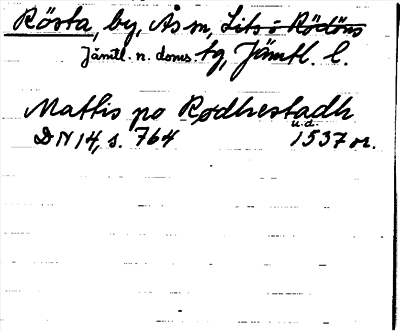 Rösta, by, Ås sn, Lits o Rödöns
Jämtl. n. doms tg, Jämtl. l.
Mattis po Rødhestadh
u.d.
DN 14, s. 764 1537 or.